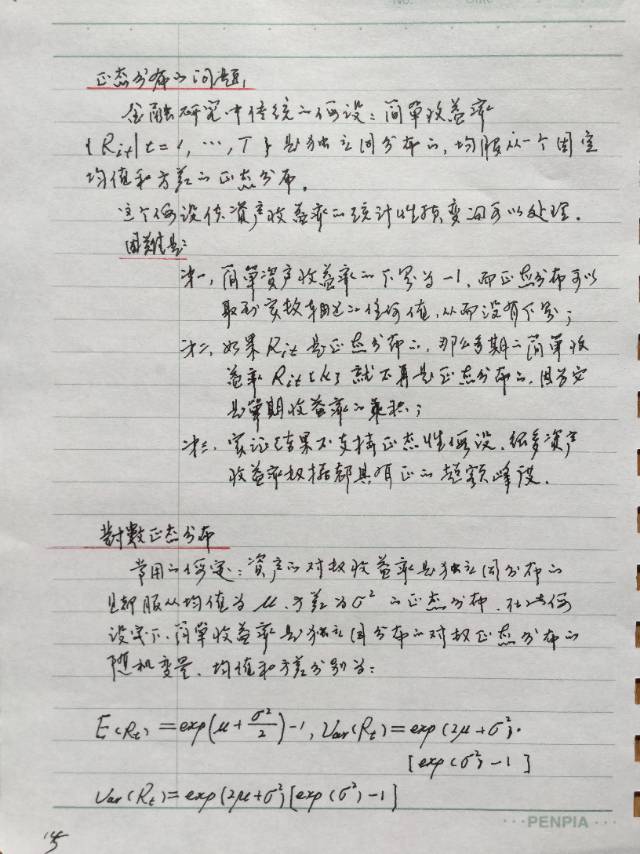 正态分布的问题,
金融研究中传统的假设:简单收益率
{Rit|t=1,…,T}是独立同分布的,均服从一个固定
均值和方差的正态分布。
这个假设使资产收益率的统计性质变得可以处理.
困难是:
第一,简单资产收益率的下界为-1,而正态分布可以
取到实数轴上的任何值,从而没有下界;
第二,如果Rit是正态分布的,那么多期的简单收
益率Rit[k]就不再是正态分布的,因为它
是单期收益率的乘积;
第三,实证结果不支持正态性假设,很多资产
收益率数据都具有正的超额峰度.
对数正态分布
常用的假定:资产的对数收益率是独立同分布的
且都服从均值为μ、方差为σ²的正态分布,在此假
设定下,简单收益率是独立同分布的对数正态分布的
随机变量,均值和方差分别为:
E(Rt)=exp(μ+σ²/2)-1,Var(Rt)=exp(2μ+σ²)·
[exp(σ²)-1]
Var(Rt)=exp(2μ+σ²)[exp(σ²)-1]
···PENPIA···